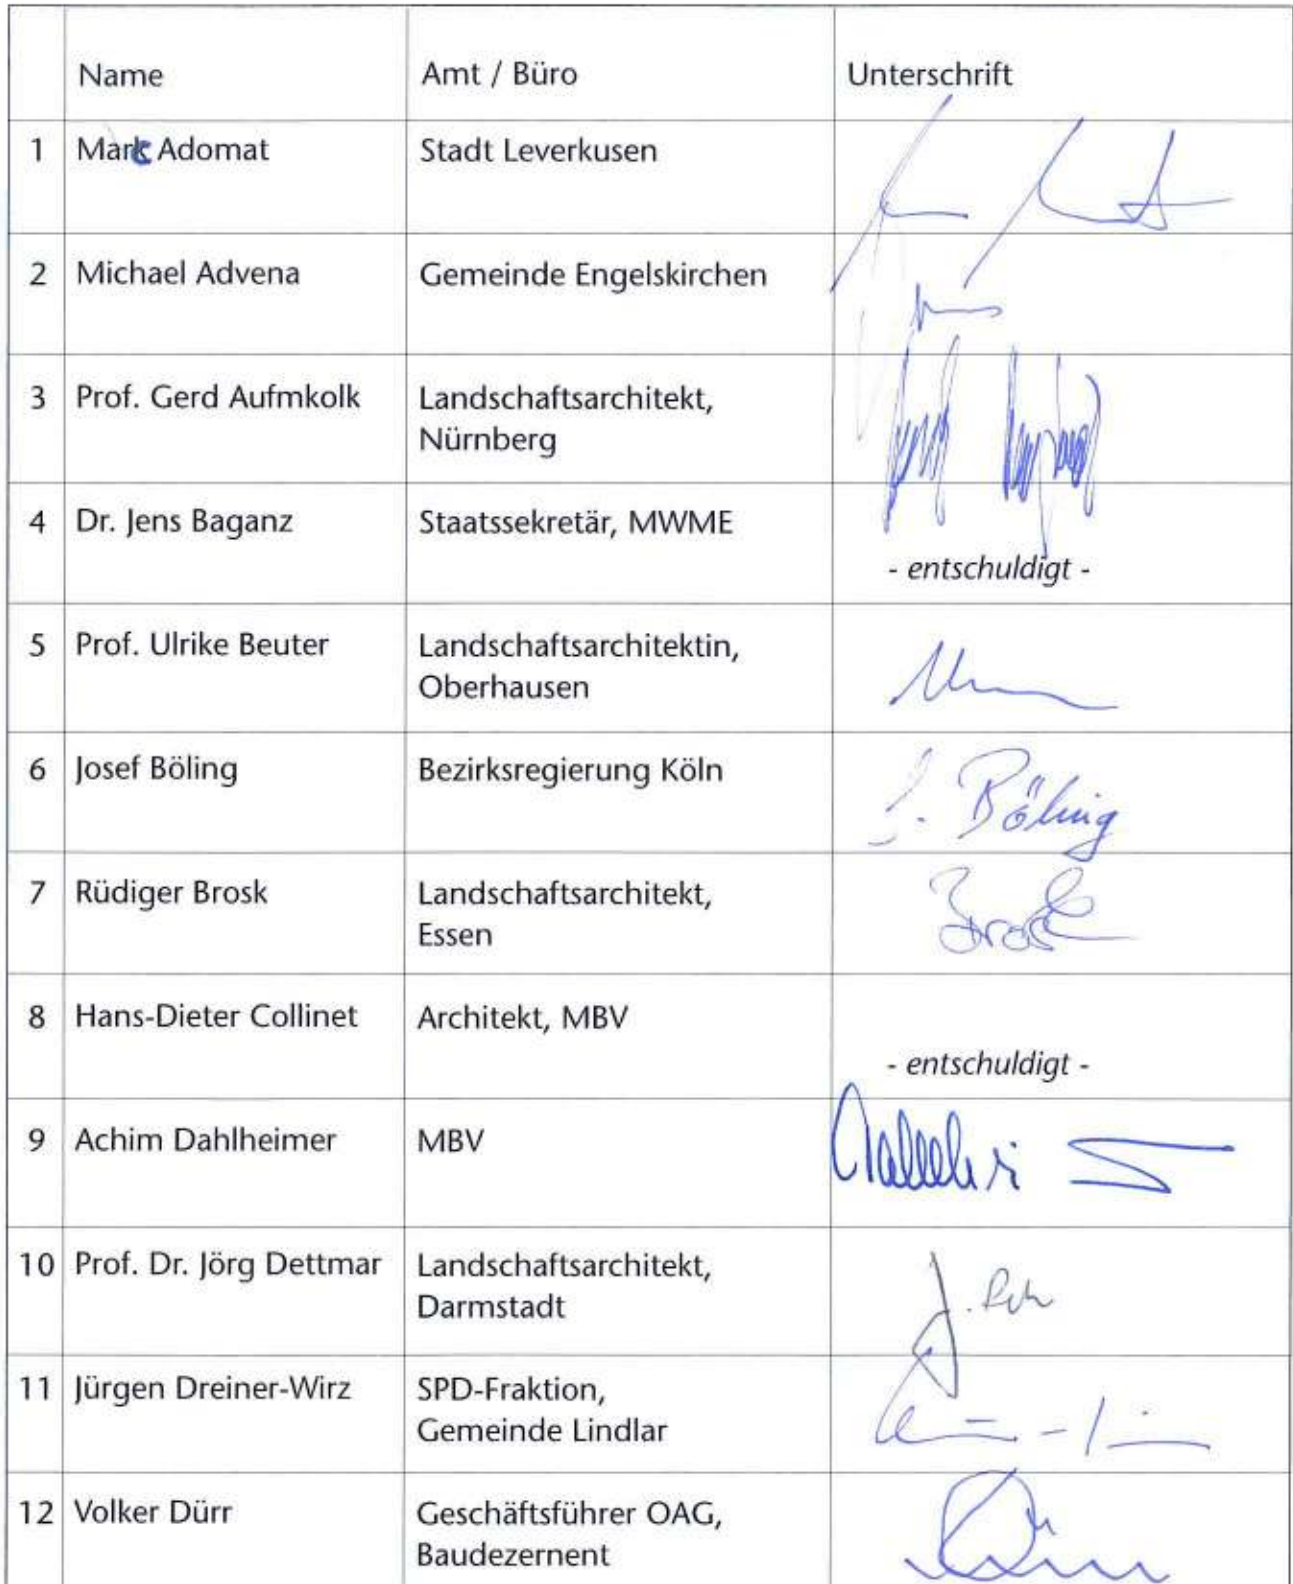 Name Amt / Büro Unterschrift
1 Marc Adomat Stadt Leverkusen
2 Michael Advena Gemeinde Engelskirchen
3 Prof. Gerd Aufmkolk Landschaftsarchitekt,
Nürnberg
4 Dr. Jens Baganz Staatssekretär, MWME
- entschuldigt -
5 Prof. Ulrike Beuter Landschaftsarchitektin,
Oberhausen
6 Josef Böling Bezirksregierung Köln J. Böling
7 Rüdiger Brosk Landschaftsarchitekt, Brosk
Essen
8 Hans-Dieter Collinet Architekt, MBV
- entschuldigt -
9 Achim Dahlheimer MBV
10 Prof. Dr. Jörg Dettmar Landschaftsarchitekt,
Darmstadt
11 Jürgen Dreiner-Wirz SPD-Fraktion,
Gemeinde Lindlar
12 Volker Dürr Geschäftsführer OAG,
Baudezernent